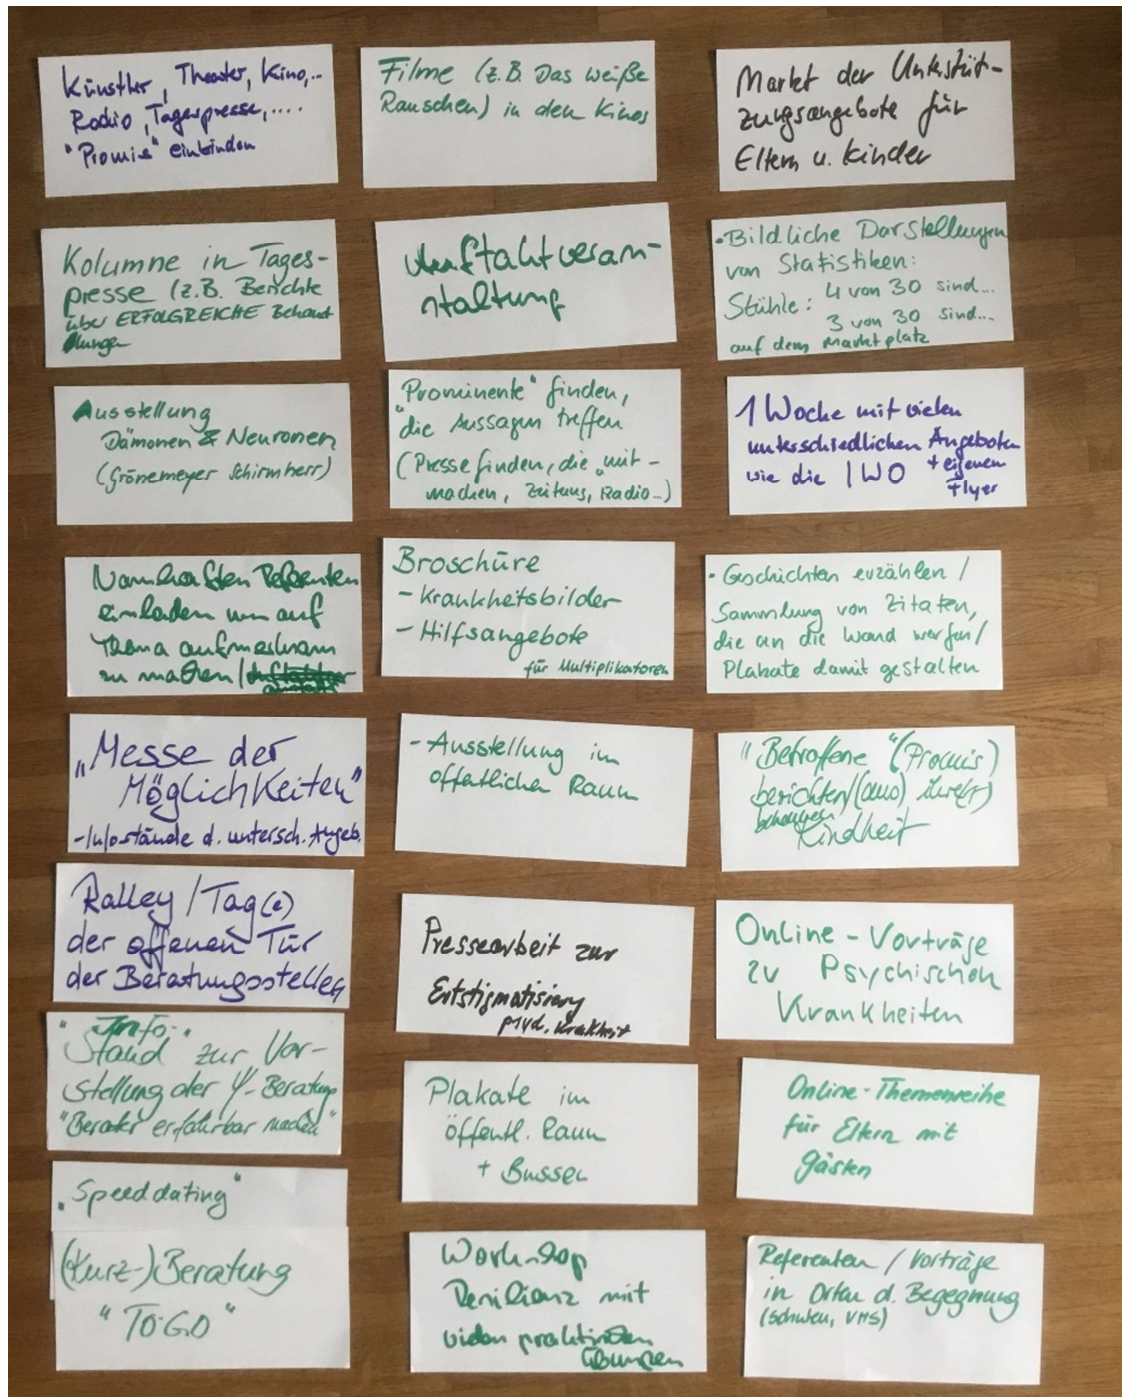 Künstler, Theater, Kino,..
Radio, Tagespresse,....
"Promis" einbinden
Kolumne in Tages-
presse (z.B. Berichte
über ERFOLGREICHE Behand
lungen
Ausstellung
Dämonen & Neuronen
(Grönemeyer Schirmherr)
Namhaften Referenten
einladen um auf
Thema aufmerksam
zu machen /
"Messe der
Möglichkeiten"
-Infostände d. untersch. Angeb.
Ralley / Tag(e)
der offenen Tür
der Beratungsstellen
"Info-
Stand" zur Vor-
stellung der Ψ-Beratung
"Berater erfahrbar machen"
"Speeddating"
(Kurz-)Beratung
"TO GO"
Filme (z.B. Das weiße
Rauschen) in den Kinos
Auftaktveran-
staltung
"Prominente" finden,
die Aussagen treffen
(Presse finden, die "mit-
machen, Zeitung, Radio..)
Broschüre
- Krankheitsbilder
- Hilfsangebote
für Multiplikatoren
- Ausstellung im
öffentlichen Raum
Pressearbeit zur
Entstigmatisierung
psych. Krankheit
Plakate im
öffentl. Raum
+ Bussen
Workshop
Resilianz mit
vielen praktischen
Übungen
Markt der Unterstüt-
zungsangebote für
Eltern u. Kinder
• Bildliche Darstellungen
von Statistiken:
Stühle: 4 von 30 sind...
3 von 30 sind...
auf dem Marktplatz
1 Woche mit vielen
unterschiedlichen Angeboten
wie die IWO + eigenen
Flyer
• Geschichten erzählen /
Sammlung von Zitaten,
die an die Wand werfen /
Plakate damit gestalten
"Betroffene" (Promis)
berichten/(aus) ihre(r)
Kindheit
Online-Vorträge
zu Psychischen
Krankheiten
Online-Themenreihe
für Eltern mit
Gästen
Referenten / Vorträge
in Orten d. Begegnung
(Schulen, VHS)